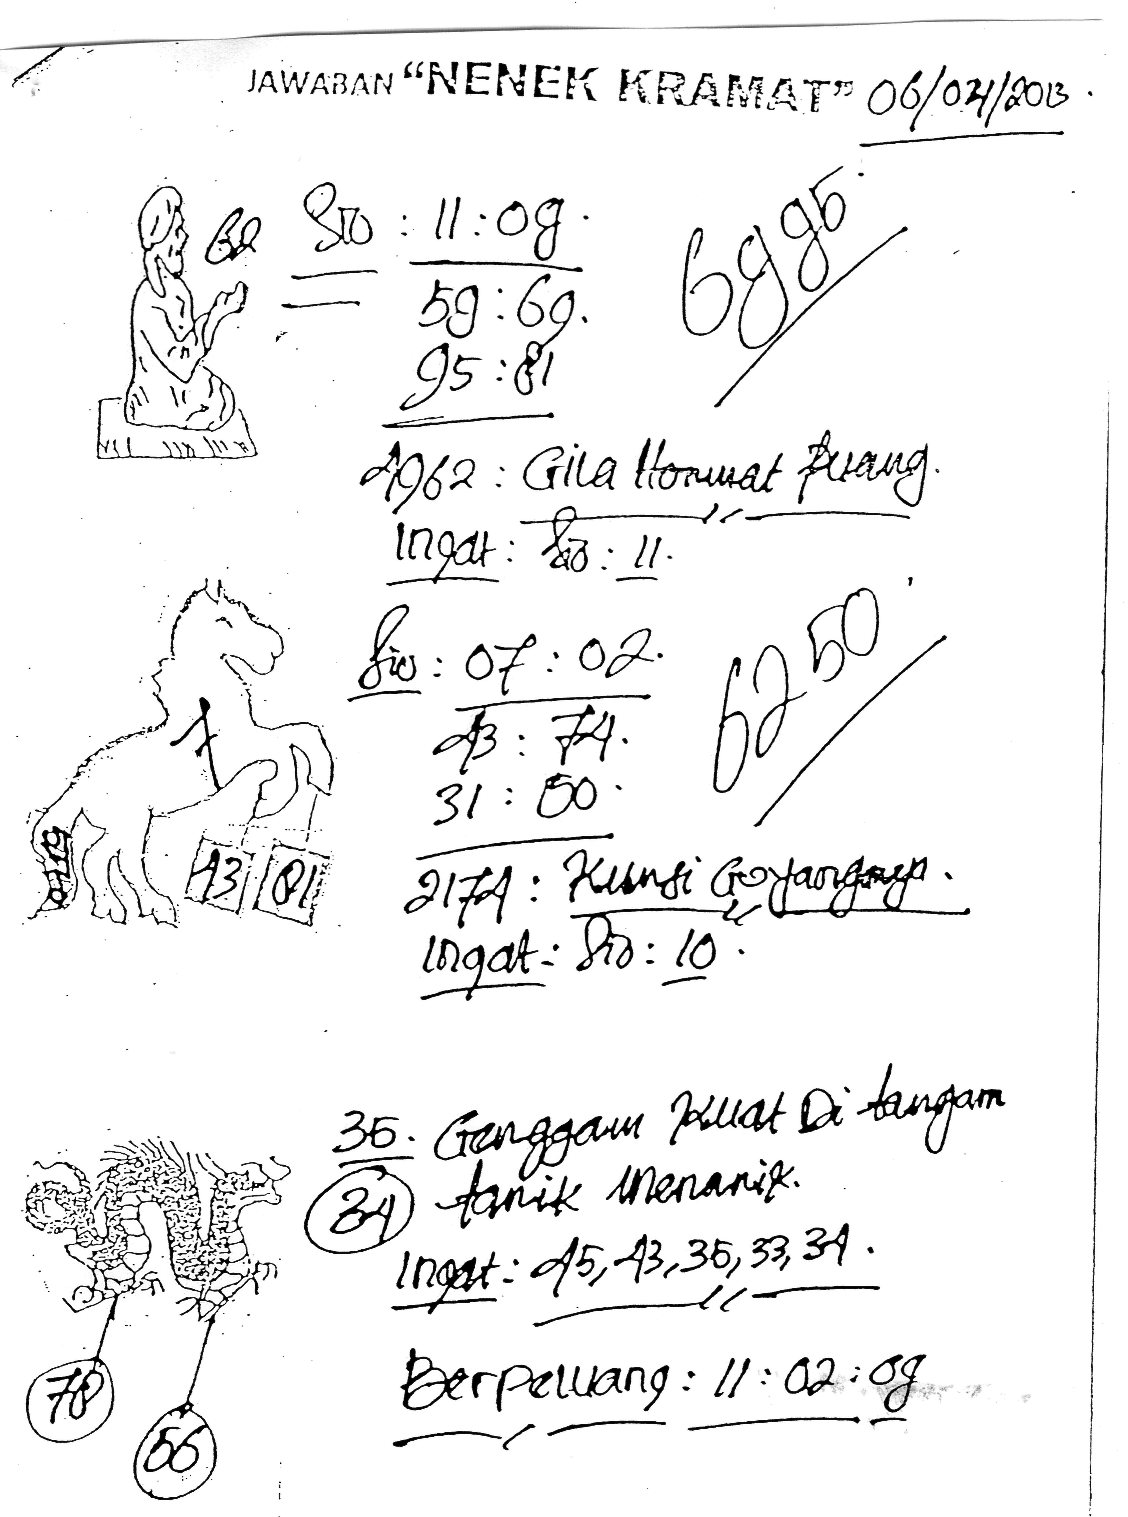 JAWABAN "NENEK KRAMAT" 06/04/2013
62 Sio : 11 : 09.
59 : 69.
95 : 81
6995
4962 : Gila Hormat Ruang.
Ingat : Sio : 11.
Sio : 07 : 02.
43 : 74.
31 : 50.
6250
43 | 01
2174 : Kunsi Goyangnya.
Ingat : Sio : 10.
35. Genggam Kuat Di tangan
34 tarik Menarik.
Ingat : 45, 43, 35, 33, 34.
Berpeluang : 11 : 02 : 09
78
56